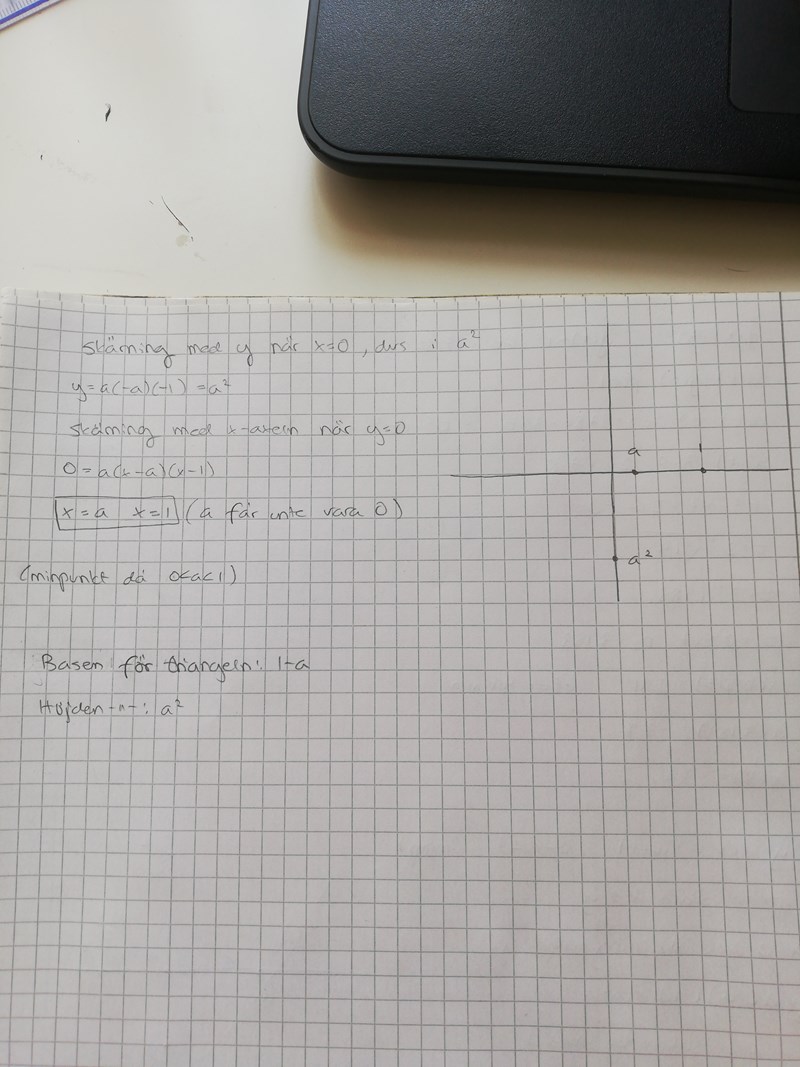 Skärning med y när x=0, dvs i a²
y=a(-a)(-1) = a²
Skärning med x-axeln när y=0
0=a(x-a)(x-1)
x=a x=1 (a får inte vara 0)
(minpunkt då 0<a<1)
Basen för triangeln: 1-a
Höjden -"-: a²
a 1
a²